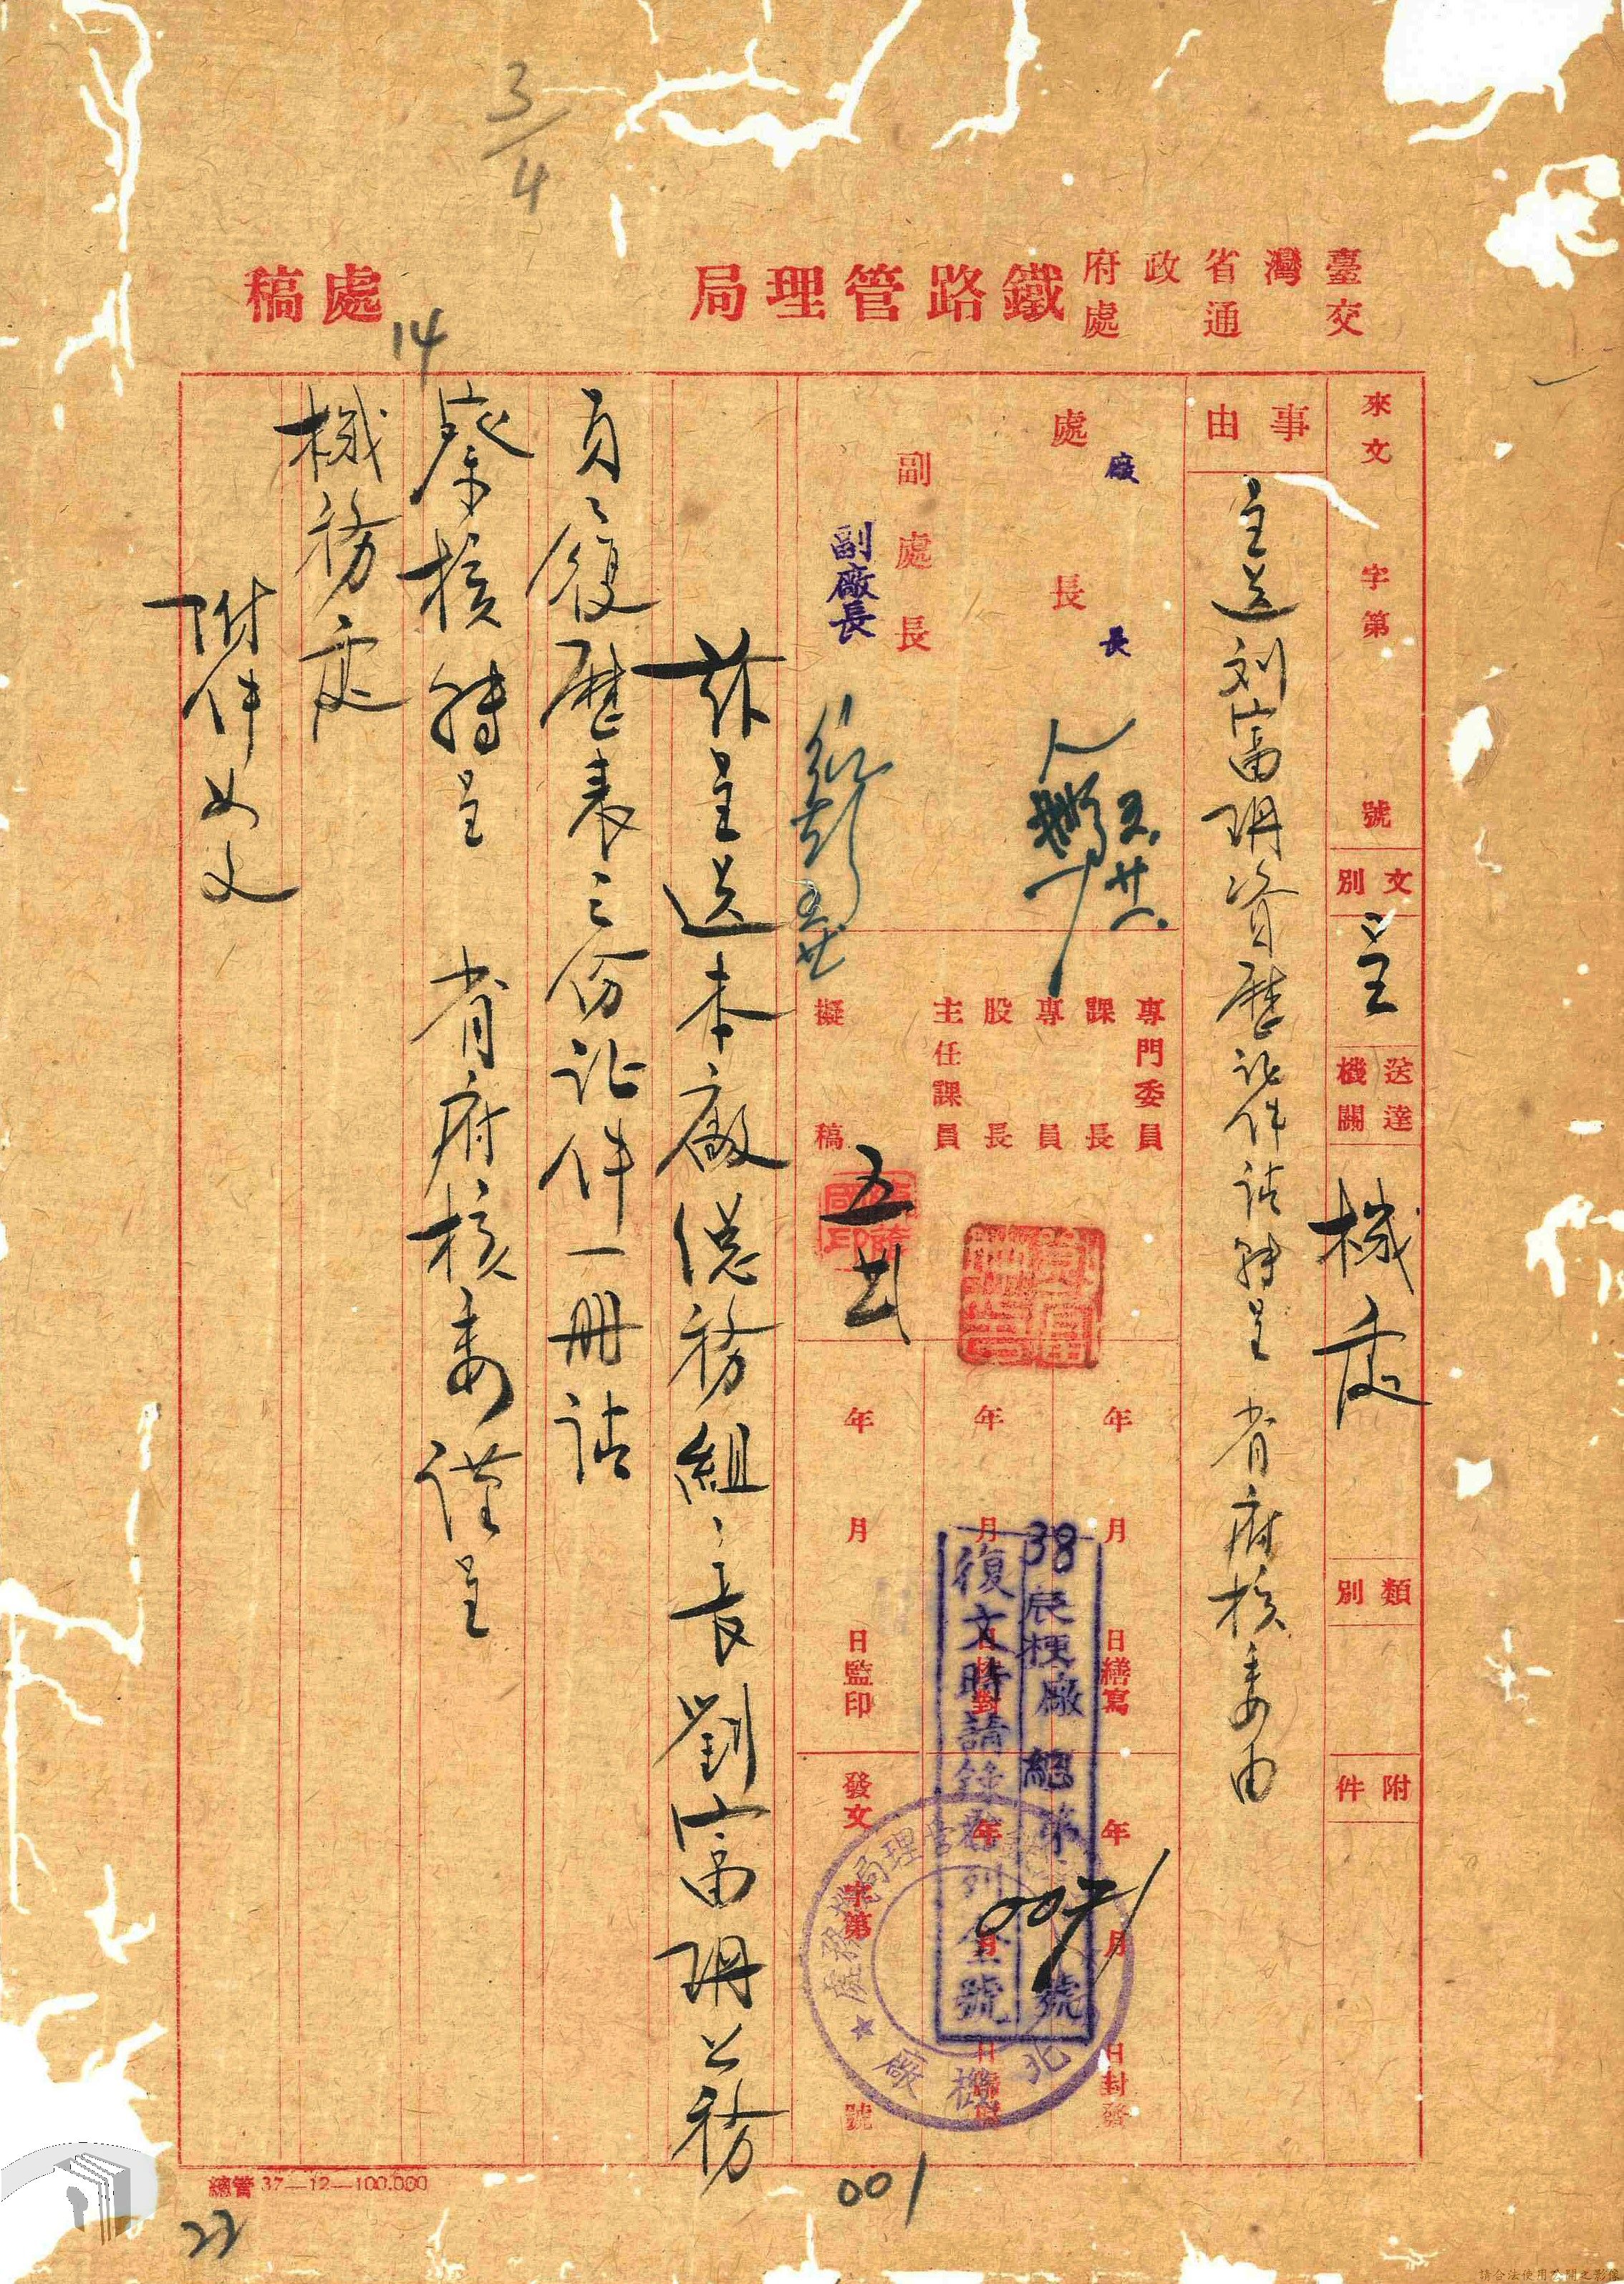 3/4
臺灣省政府
交通處
鐵路管理局
處稿
14
來文 字第 號
文別
呈
送達機關
機處
類別
附件
事由
呈送刘富珊資歷証件請轉呈 省府核委由
處長
廠長
五廿八
副處長
副廠長
專門委員
課長
專員
股長
主任課員
擬稿
年 月 日繕寫
年 月 日校對
年 月 日監印
年 月 日封發
年 月 日歸檔
發文 字第 號
38辰梗廠總第 號
0071
復文時請錄 列全號
鐵路管理局機務處
台北機廠
茲呈送本廠總務組組長劉富珊公務
員履歷表三份証件一冊請
察核轉呈 省府核委謹呈
機務處
附件如文
總管 37—12—100.000
001
22
請合法使用公開之影像